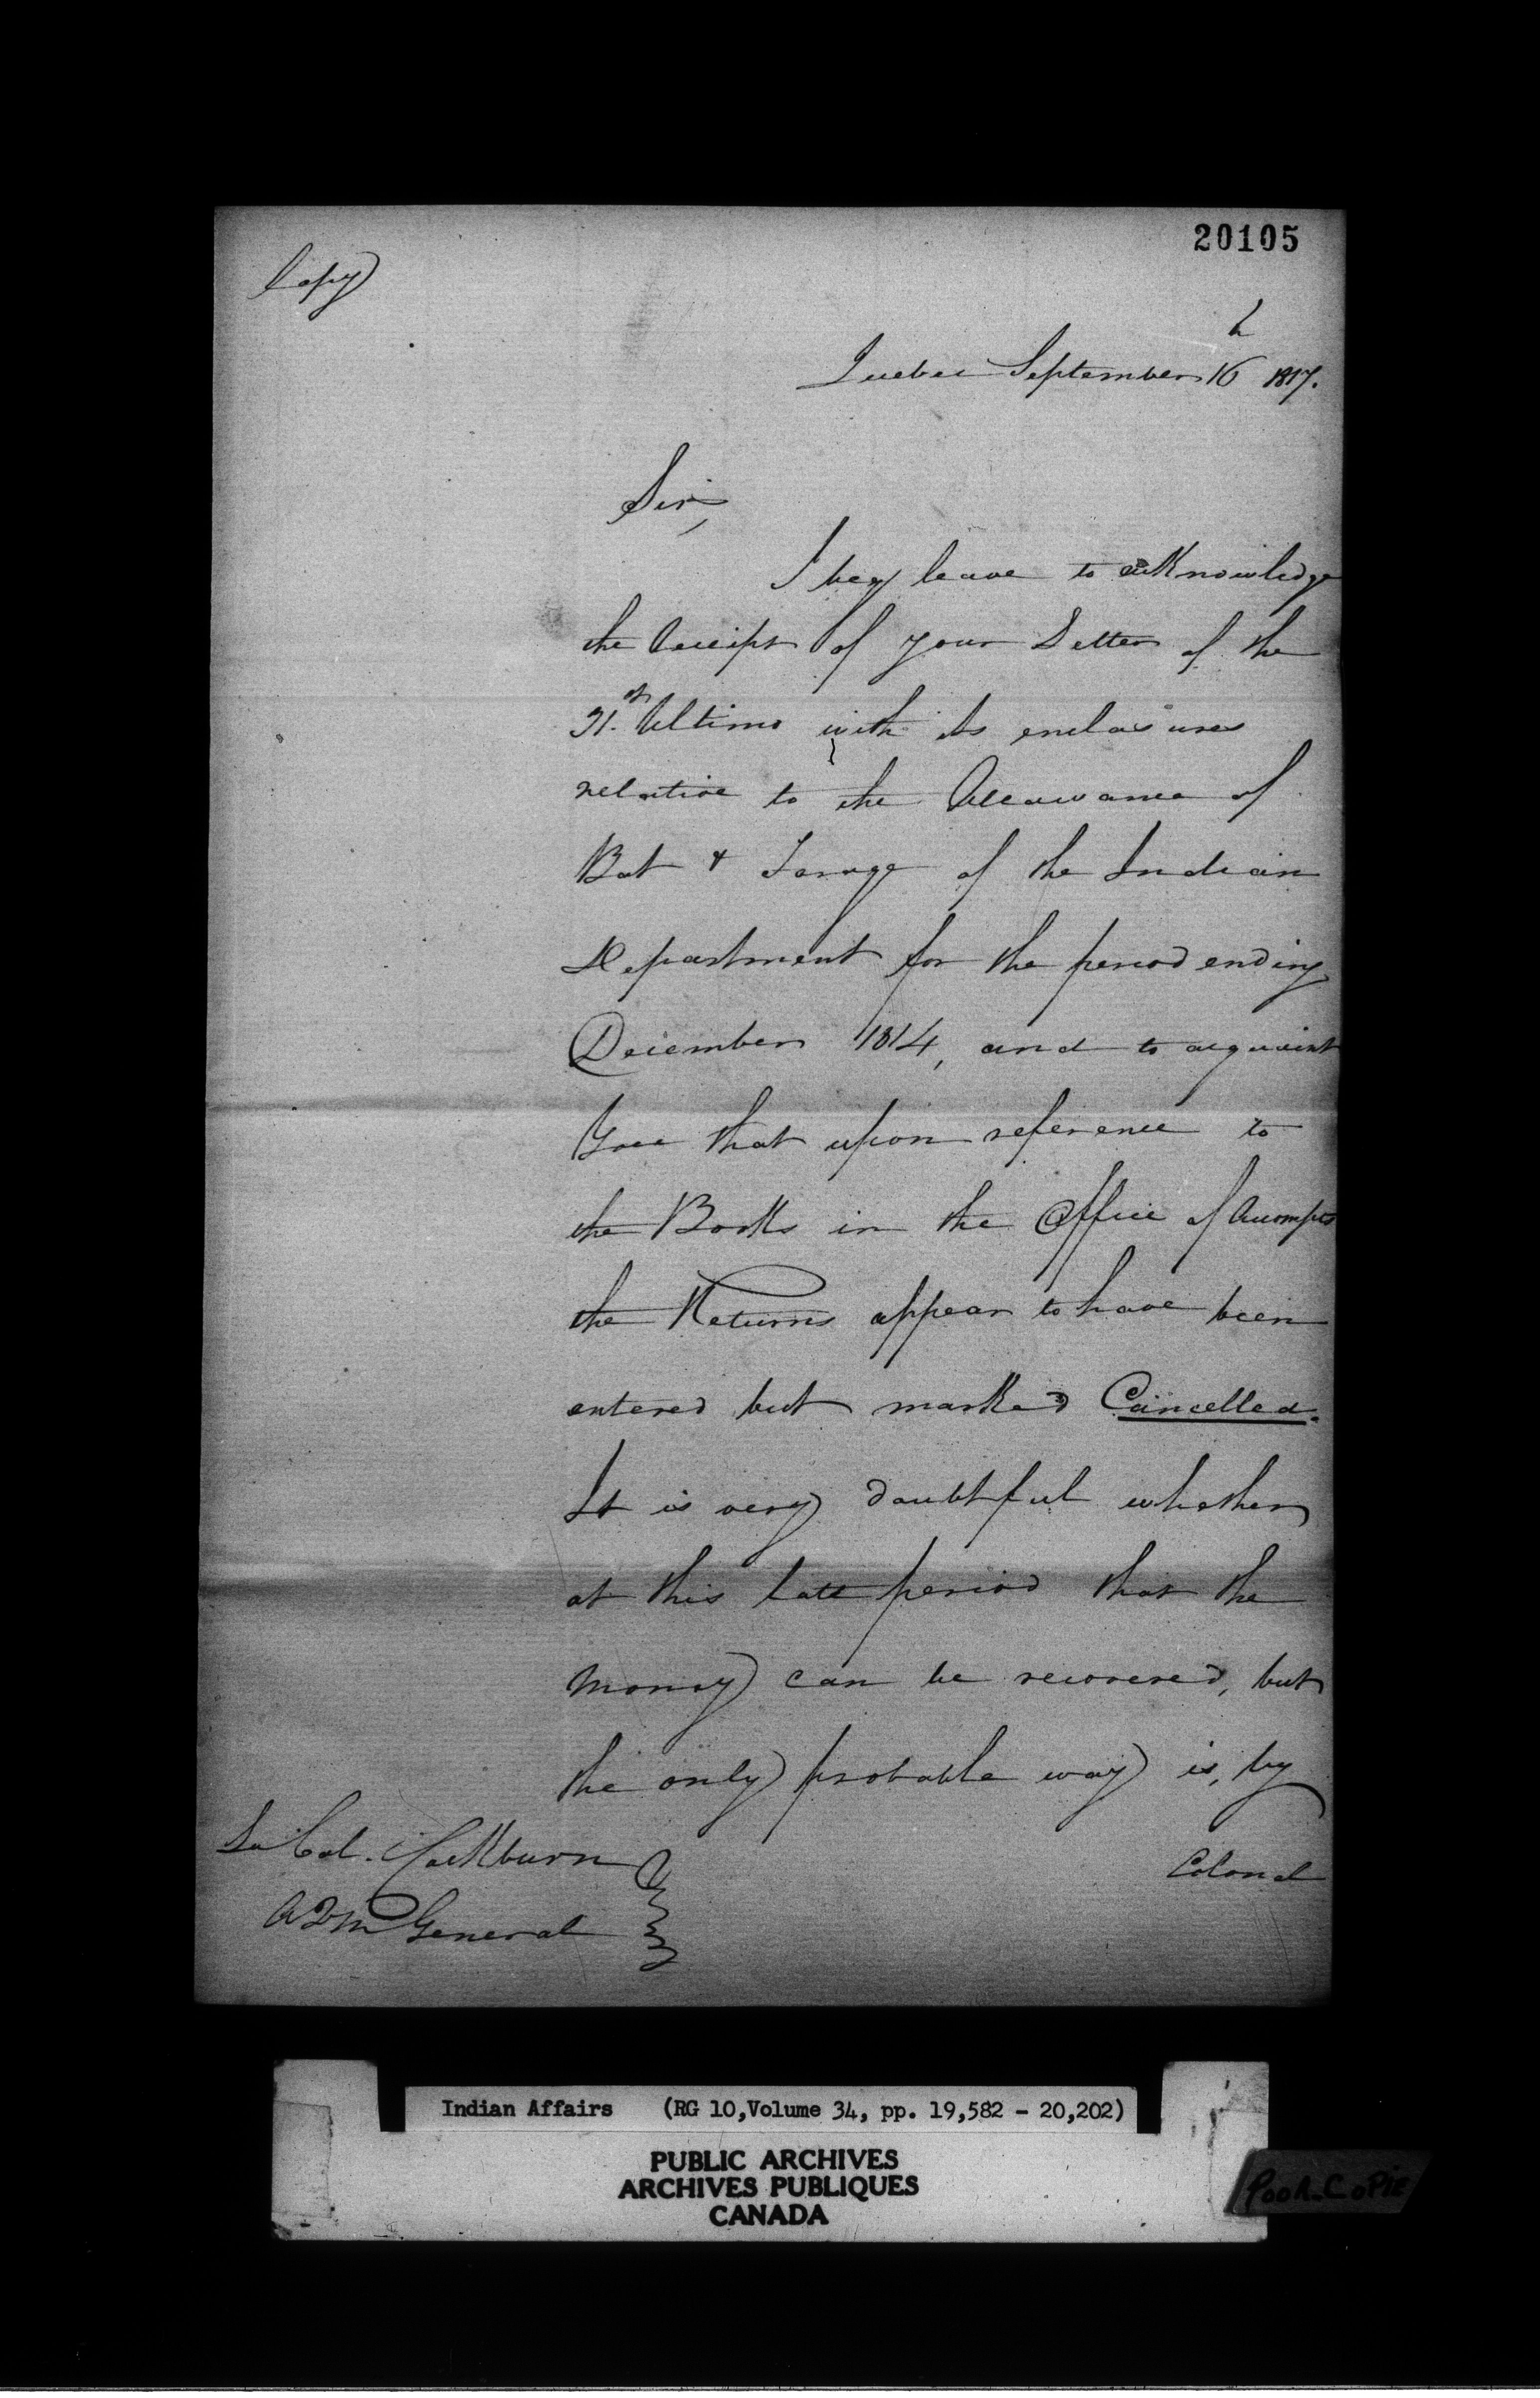 20105
Copy
Quebec September 16th 1817.
Sir,
I beg leave to acknowledge
the Receipt of your Letter of the
31st. Ultimo with its enclosures
relative to the Allowance of
Bat & Forage of the Indian
Department for the period ending
December 1814, and to acquaint
You that upon reference to
the Books in the Office of Accompts
the Returns appear to have been
entered but marked Cancelled.
It is very doubtful whether
at this late period that the
money can be recovered, but
the only probable way is, by
Colonel
Lt Col. Cockburn
A Q M General
Indian Affairs (RG 10, Volume 34, pp. 19,582 - 20,202)
PUBLIC ARCHIVES
ARCHIVES PUBLIQUES
CANADA
Poor-Copie